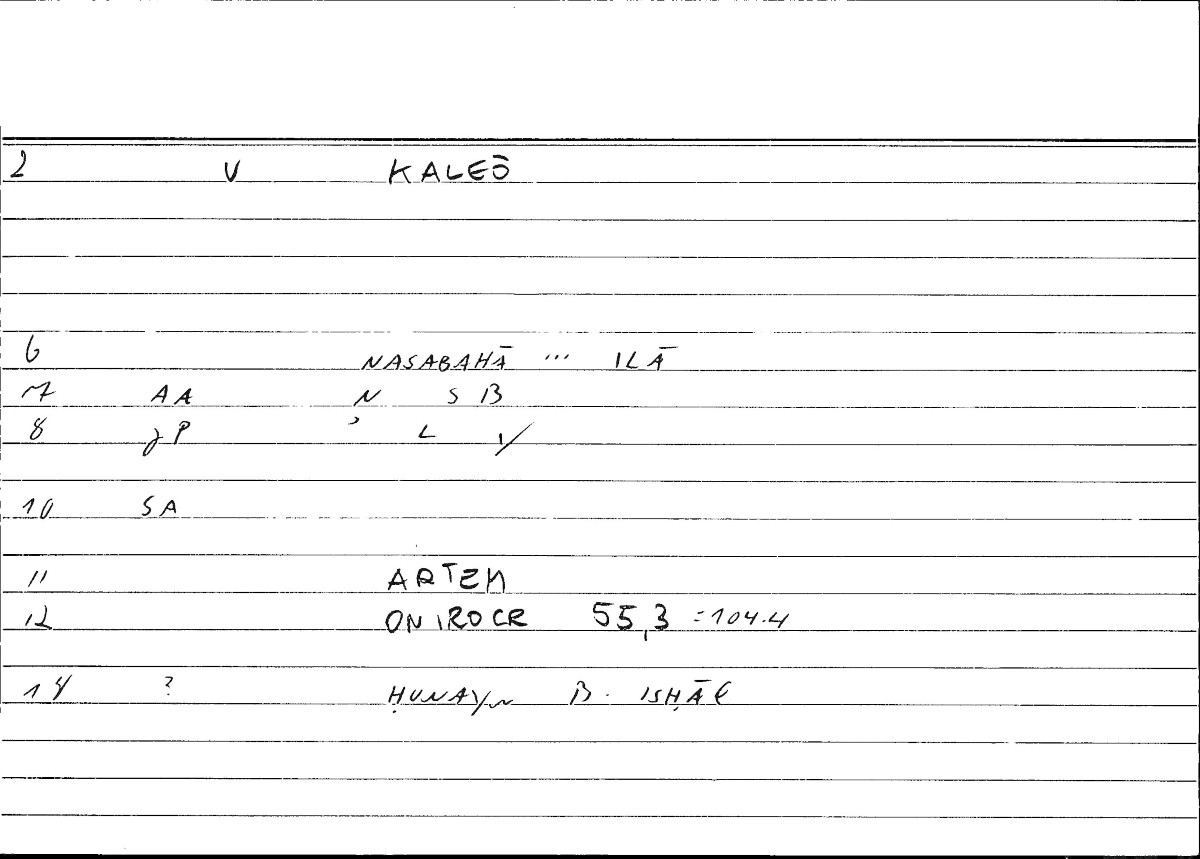 2 V KALEŌ
6 NASABAHĀ ... ILĀ
7 AA N S B
8 JP ʾ L Y
10 SA
11 ARTEM
12 ONIROCR 55,3 =104.4
14 ? ḤUNAYN B. ISḤĀQ